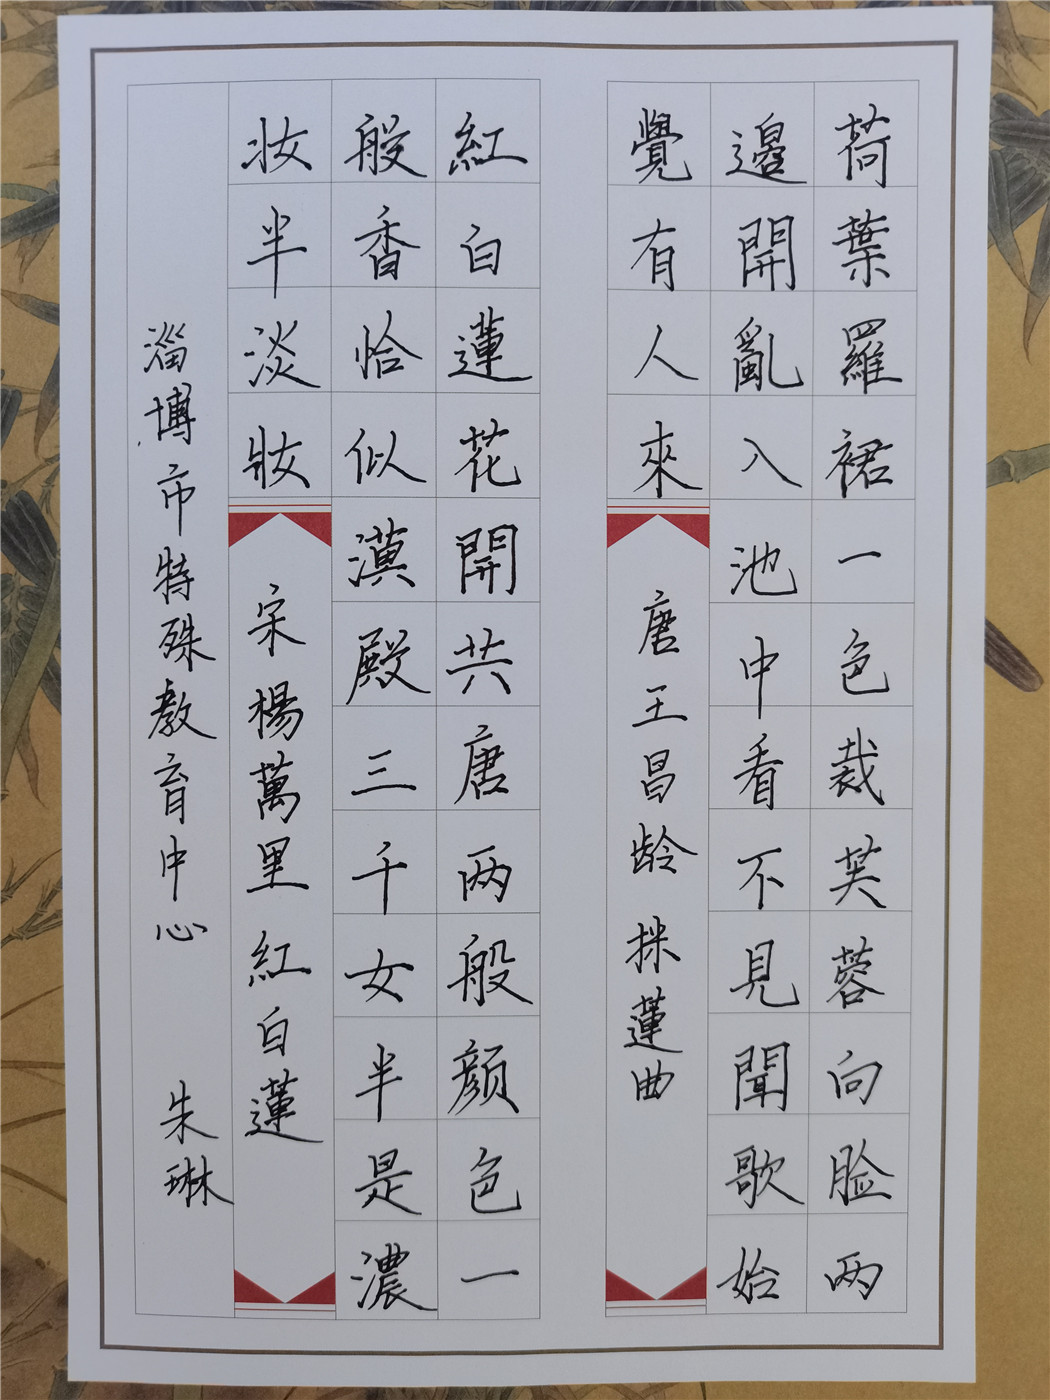 荷葉羅裙一色裁芙蓉向脸两
邊開亂入池中看不見聞歌始
覺有人來
唐王昌龄 採蓮曲
紅白蓮花開共唐两般顔色一
般香恰似漢殿三千女半是濃
妆半淡妝
宋楊萬里 紅白蓮
淄博市特殊教育中心 朱琳